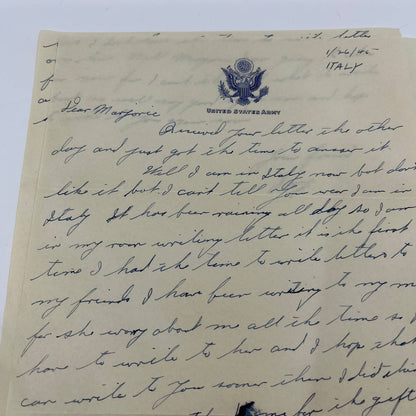 letter
1/26/45
ITALY
UNITED STATES ARMY
Dear Marjorie
Received your letter the other
day and just got the time to answer it
Well I am in Italy now but don
like it but I cant tell You wear I am in
Italy It has been raining all day so I am
in my room writing letter it is the first
time I had the time to write letters to
my friends I have been writing to my m
for she worry about me all the time so I
have to write to her and I hope that
can write to You sooner than I did this
for the gift